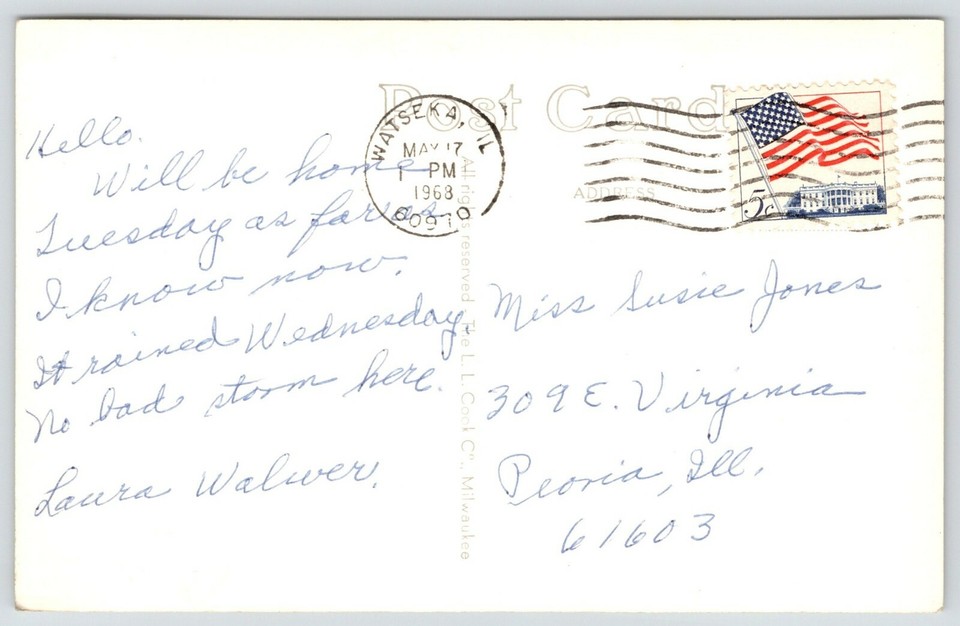 Hello.
Will be home
Tuesday as far as
I know now.
It rained Wednesday.
No bad storm here.
Laura Walwer.
Post Card
ADDRESS
WATSEKA, IL
MAY 17
1 PM
1968
60970
5c
Miss Susie Jones
309 E. Virginia
Peoria, Ill.
61603
All rights reserved The L. L. Cook Co., Milwaukee